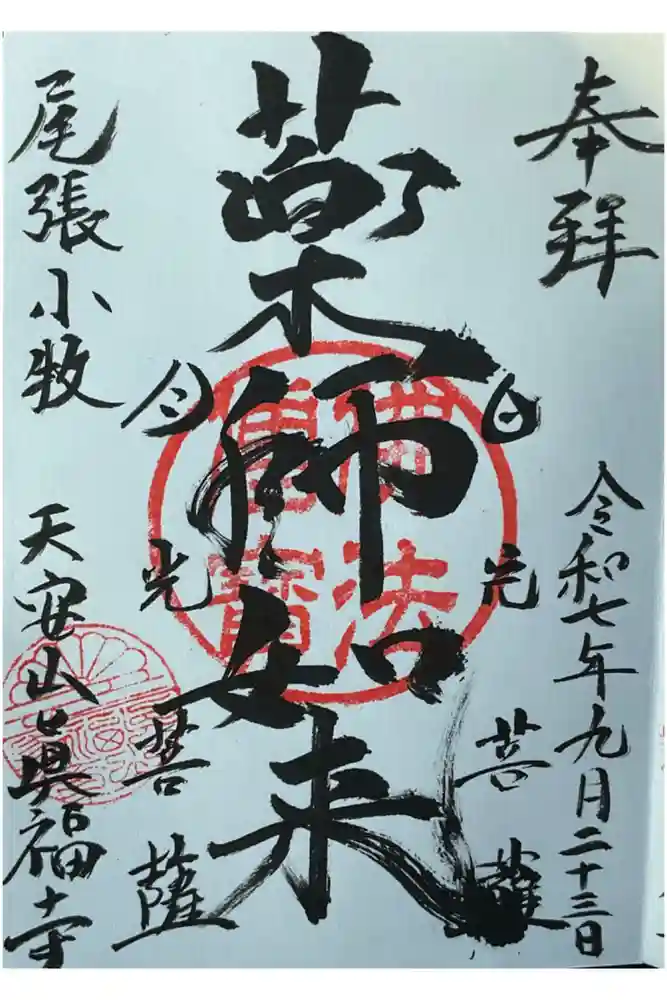 奉拝
令和七年九月二十三日
日光菩薩
薬師如来
月光菩薩
尾張小牧
天安山眞福寺
佛法僧寶